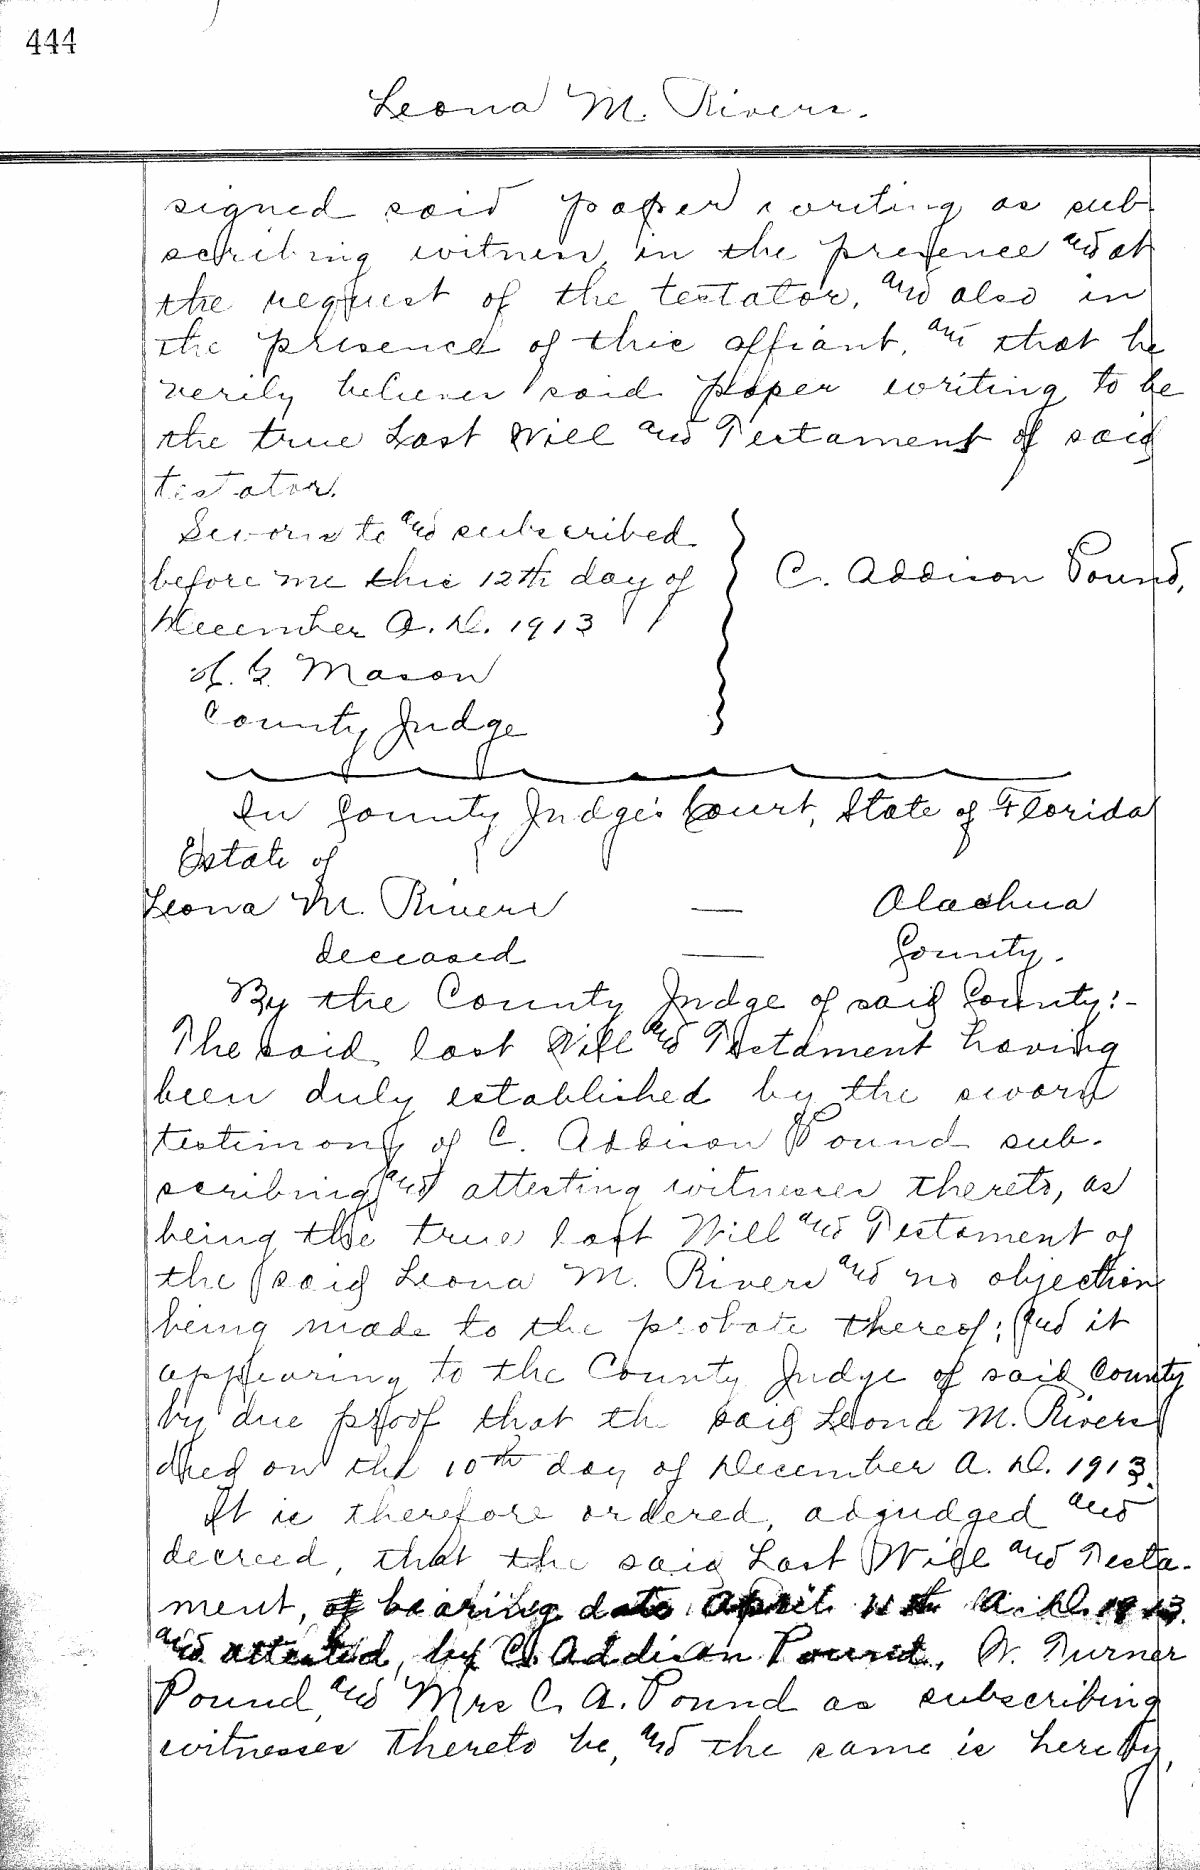 444
Leona M. Rivers.
signed said paper writing as sub-
scribing witness, in the presence and at
the request of the testator, and also in
the presence of this affiant, and that he
verily believes said paper writing to be
the true Last Will and Testament of said
testator.
Sworn to and subscribed
before me this 12th day of
December A. D. 1913
C. Addison Pound,
H. G. Mason
County Judge
In County Judge's Court, State of Florida
Estate of
Leona M. Rivers — Alachua
deceased — County.
By the County Judge of said County:-
The said last Will and Testament having
been duly established by the sworn
testimony of C. Addison Pound sub-
scribing and attesting witnesses thereto, as
being the true last Will and Testament of
the said Leona M. Rivers and no objection
being made to the probate thereof; and it
appearing to the County Judge of said County
by due proof that the said Leona M. Rivers
died on the 10th day of December A. D. 1913.
It is therefore ordered, adjudged and
decreed, that the said Last Will and Testa-
ment, bearing date April 11th A. D. 1913.
and attested, by C. Addison Pound, W. Turner
Pound, and Mrs C. A. Pound as subscribing
witnesses thereto be, and the same is hereby,